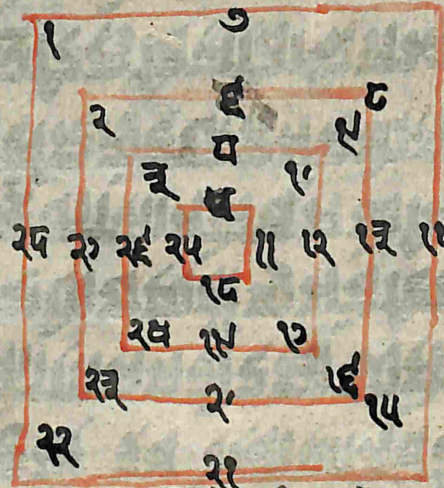 १ ७
६ ८
२ ९
५
३ १०
४
२८ २७ २६ २५ ११ १२ १३ १४
१८
२४ १९ १७
२३ २० १६
१५
२२
२१